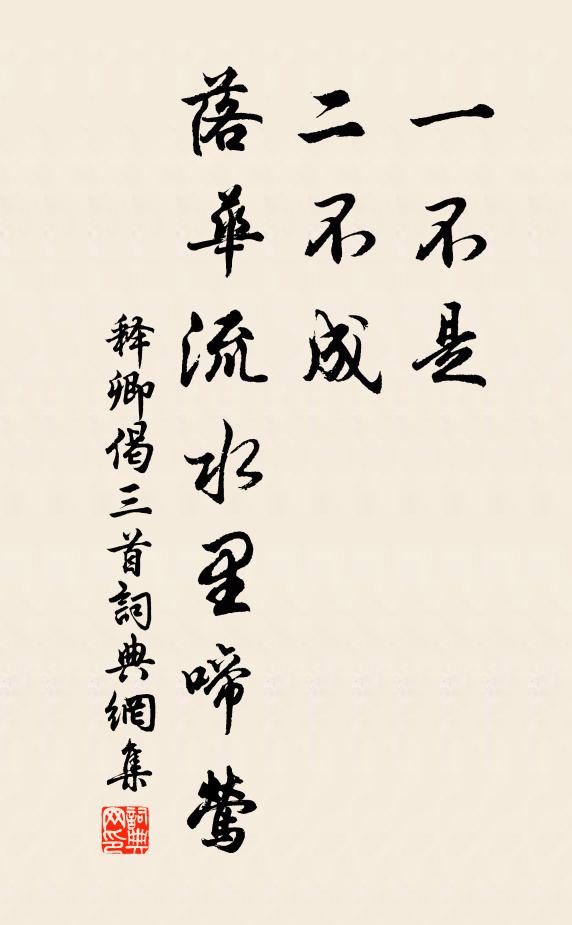 一不是
二不成
落華流水里啼鶯
释卿偈三首詞典網集
詞典网印